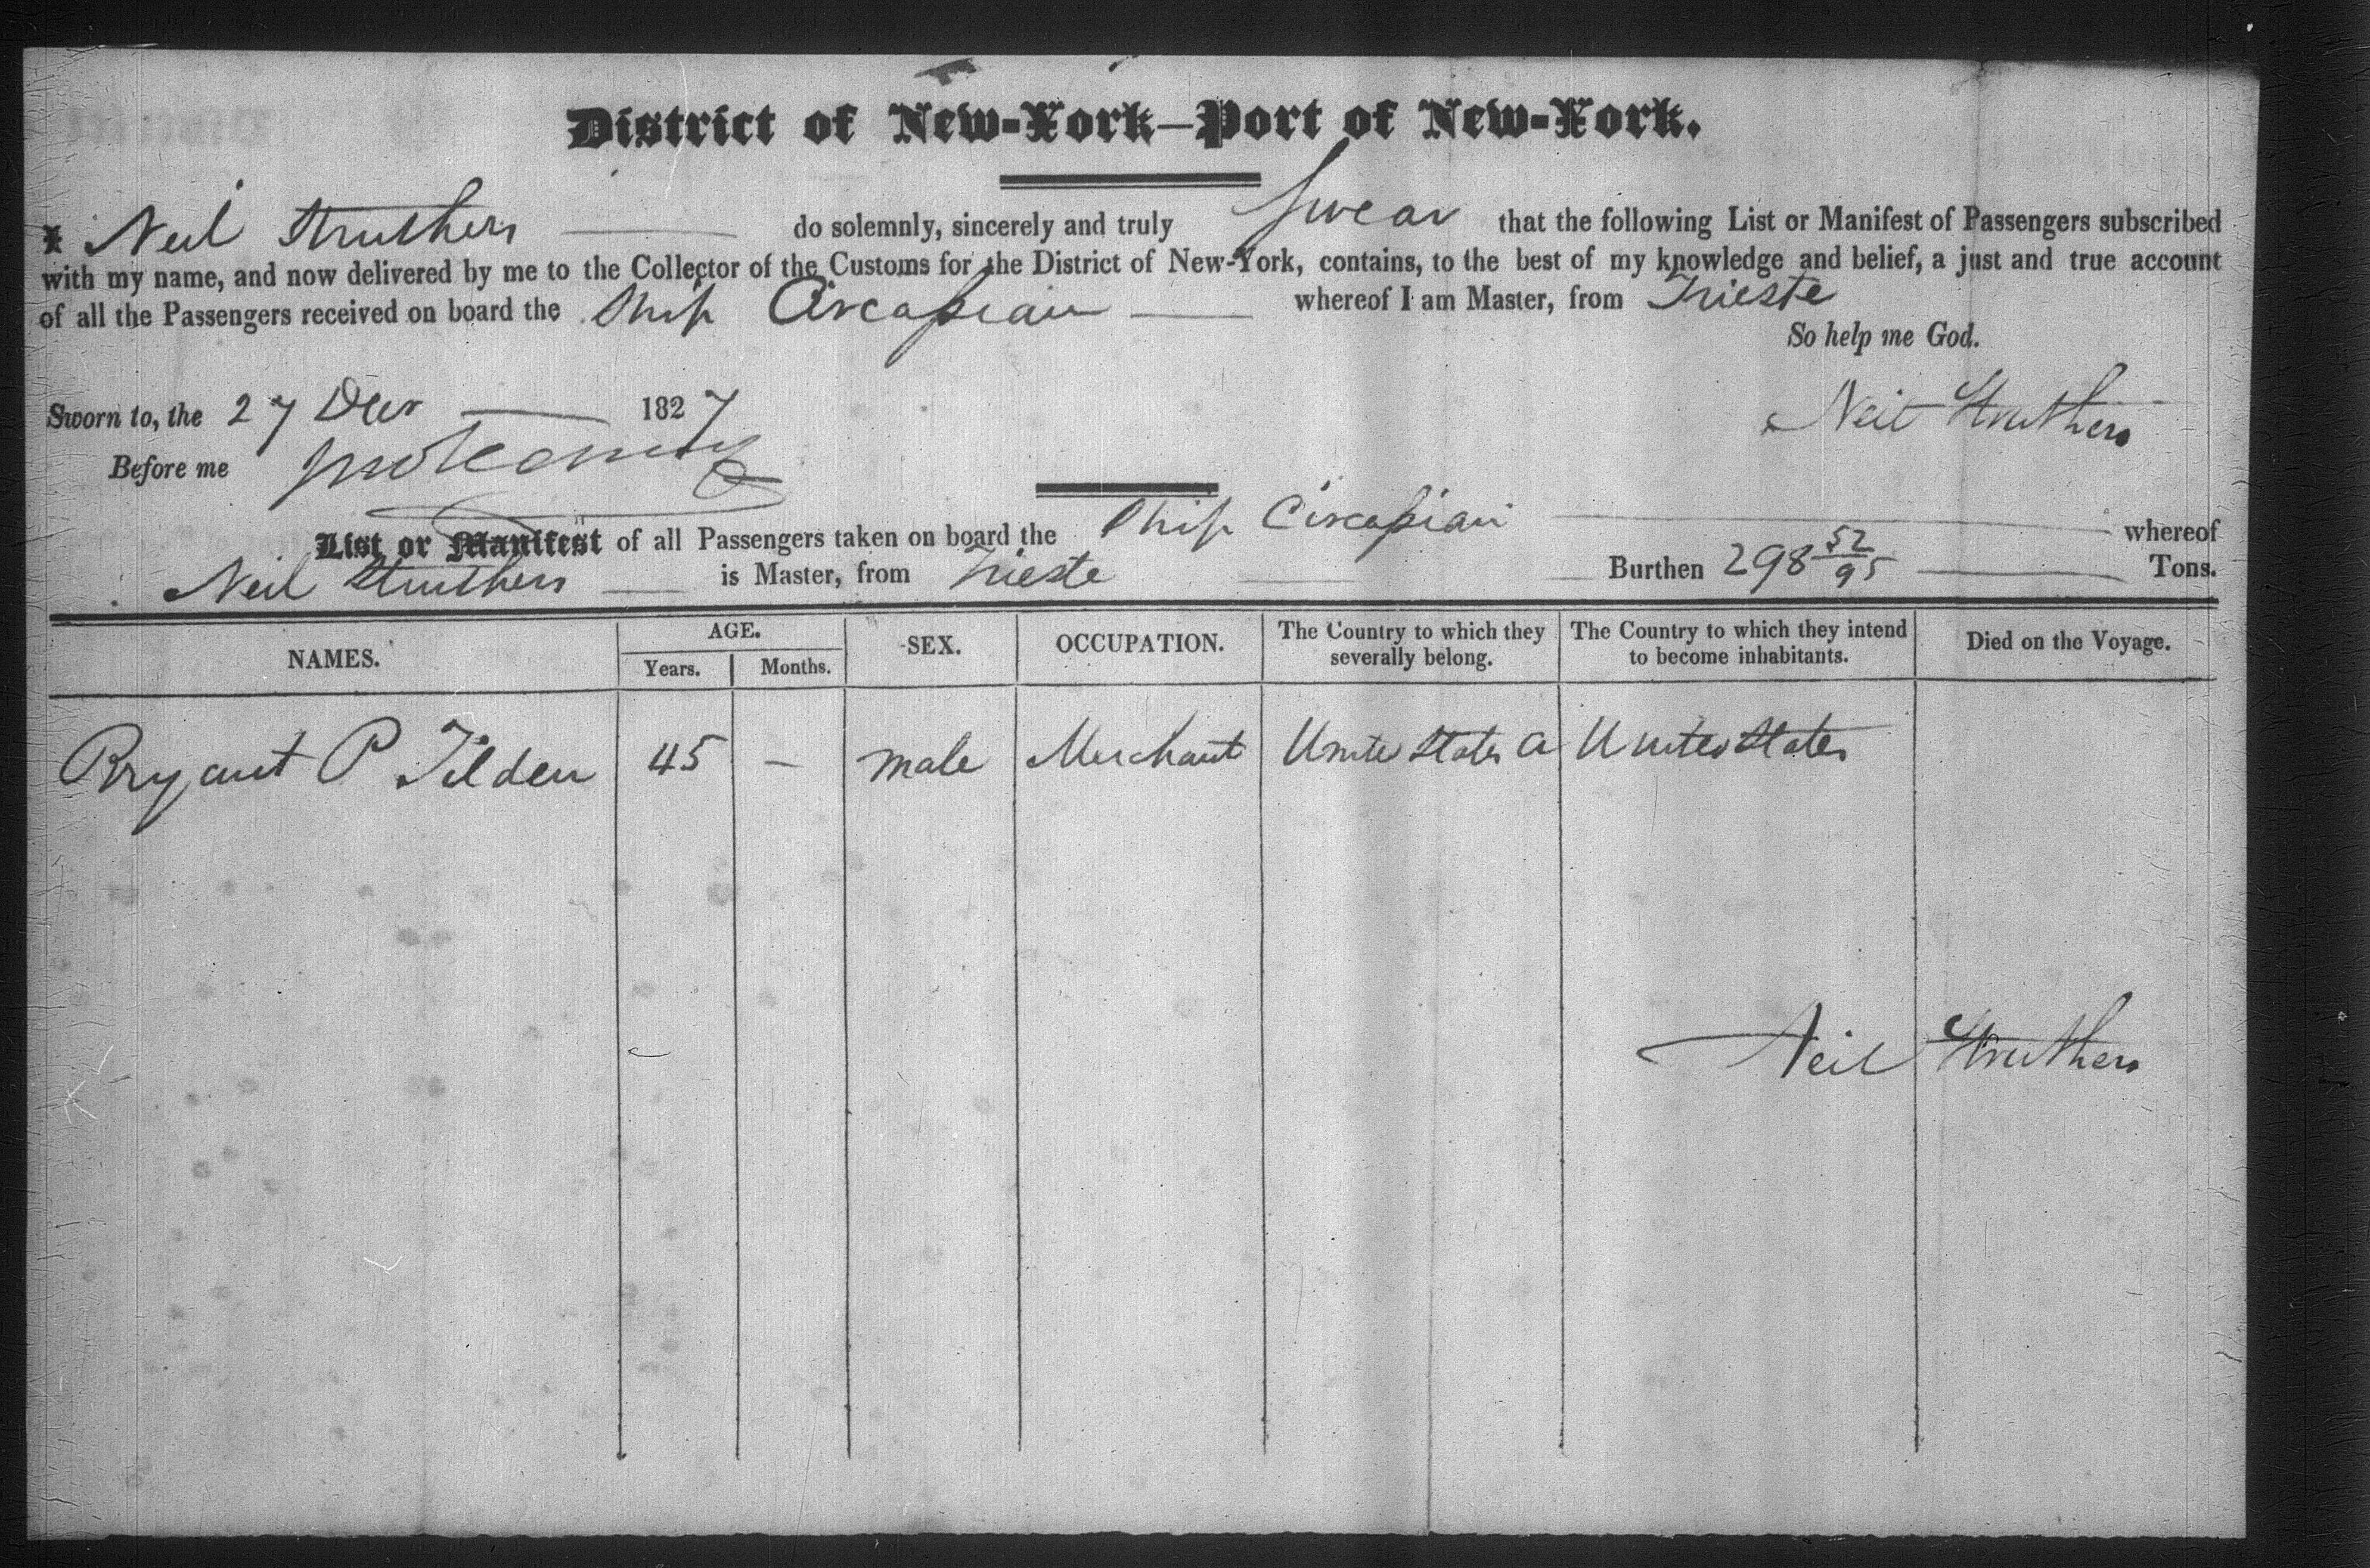 District of New-York—Port of New-York.
I Neil Struthers do solemnly, sincerely and truly swear that the following List or Manifest of Passengers subscribed
with my name, and now delivered by me to the Collector of the Customs for the District of New-York, contains, to the best of my knowledge and belief, a just and true account
of all the Passengers received on board the Ship Circaſsian whereof I am Master, from Trieste
So help me God.
Sworn to, the 27 Decr 1827
Neil Struthers
Before me
List or Manifest of all Passengers taken on board the Ship Circaſsian whereof
Neil Struthers is Master, from Trieste Burthen 298 52/95 Tons.
NAMES. AGE. SEX. OCCUPATION. The Country to which they severally belong. The Country to which they intend to become inhabitants. Died on the Voyage.
Years. Months.
Bryant P Tilden 45 — male Merchant Unite States a United States
Neil Struthers